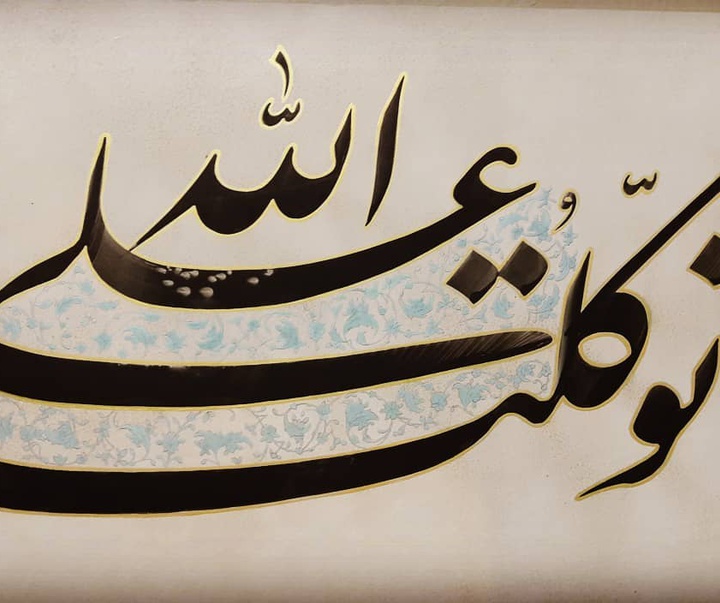 توکّلتُ علی اللّٰه